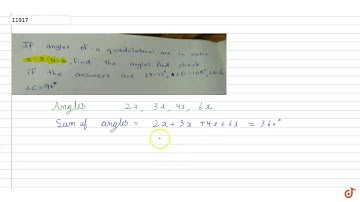 11917
If angles of a quadrilateral are in ratio
find the angles. And check
if the answers are
Angles 2x, 3x, 4x, 6x
Sum of angles = 2x + 3x + 4x + 6x = 360°